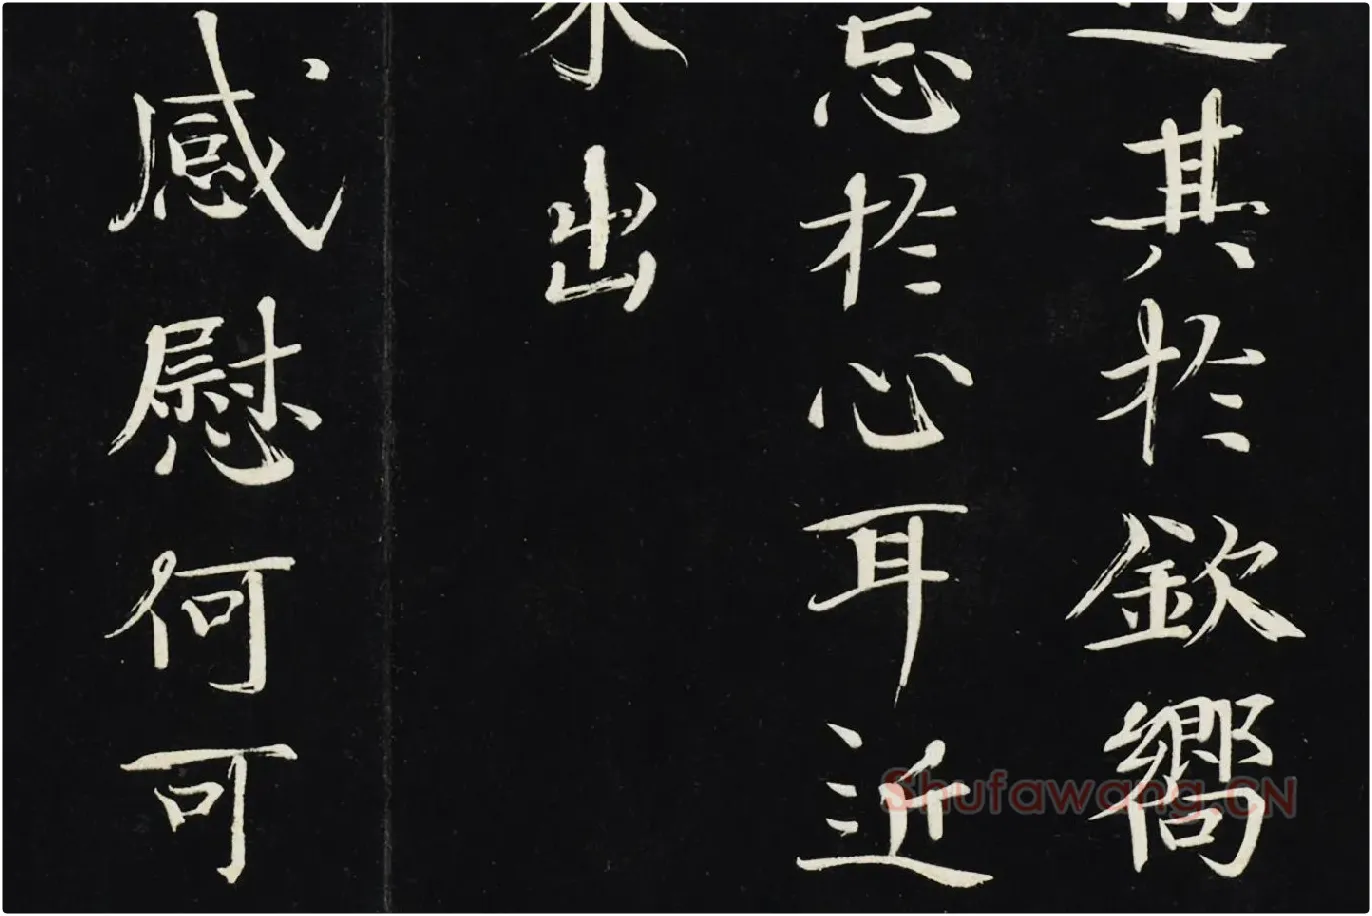 其於欽嚮
忘於心耳近
出
感慰何可
Shufawang.CN